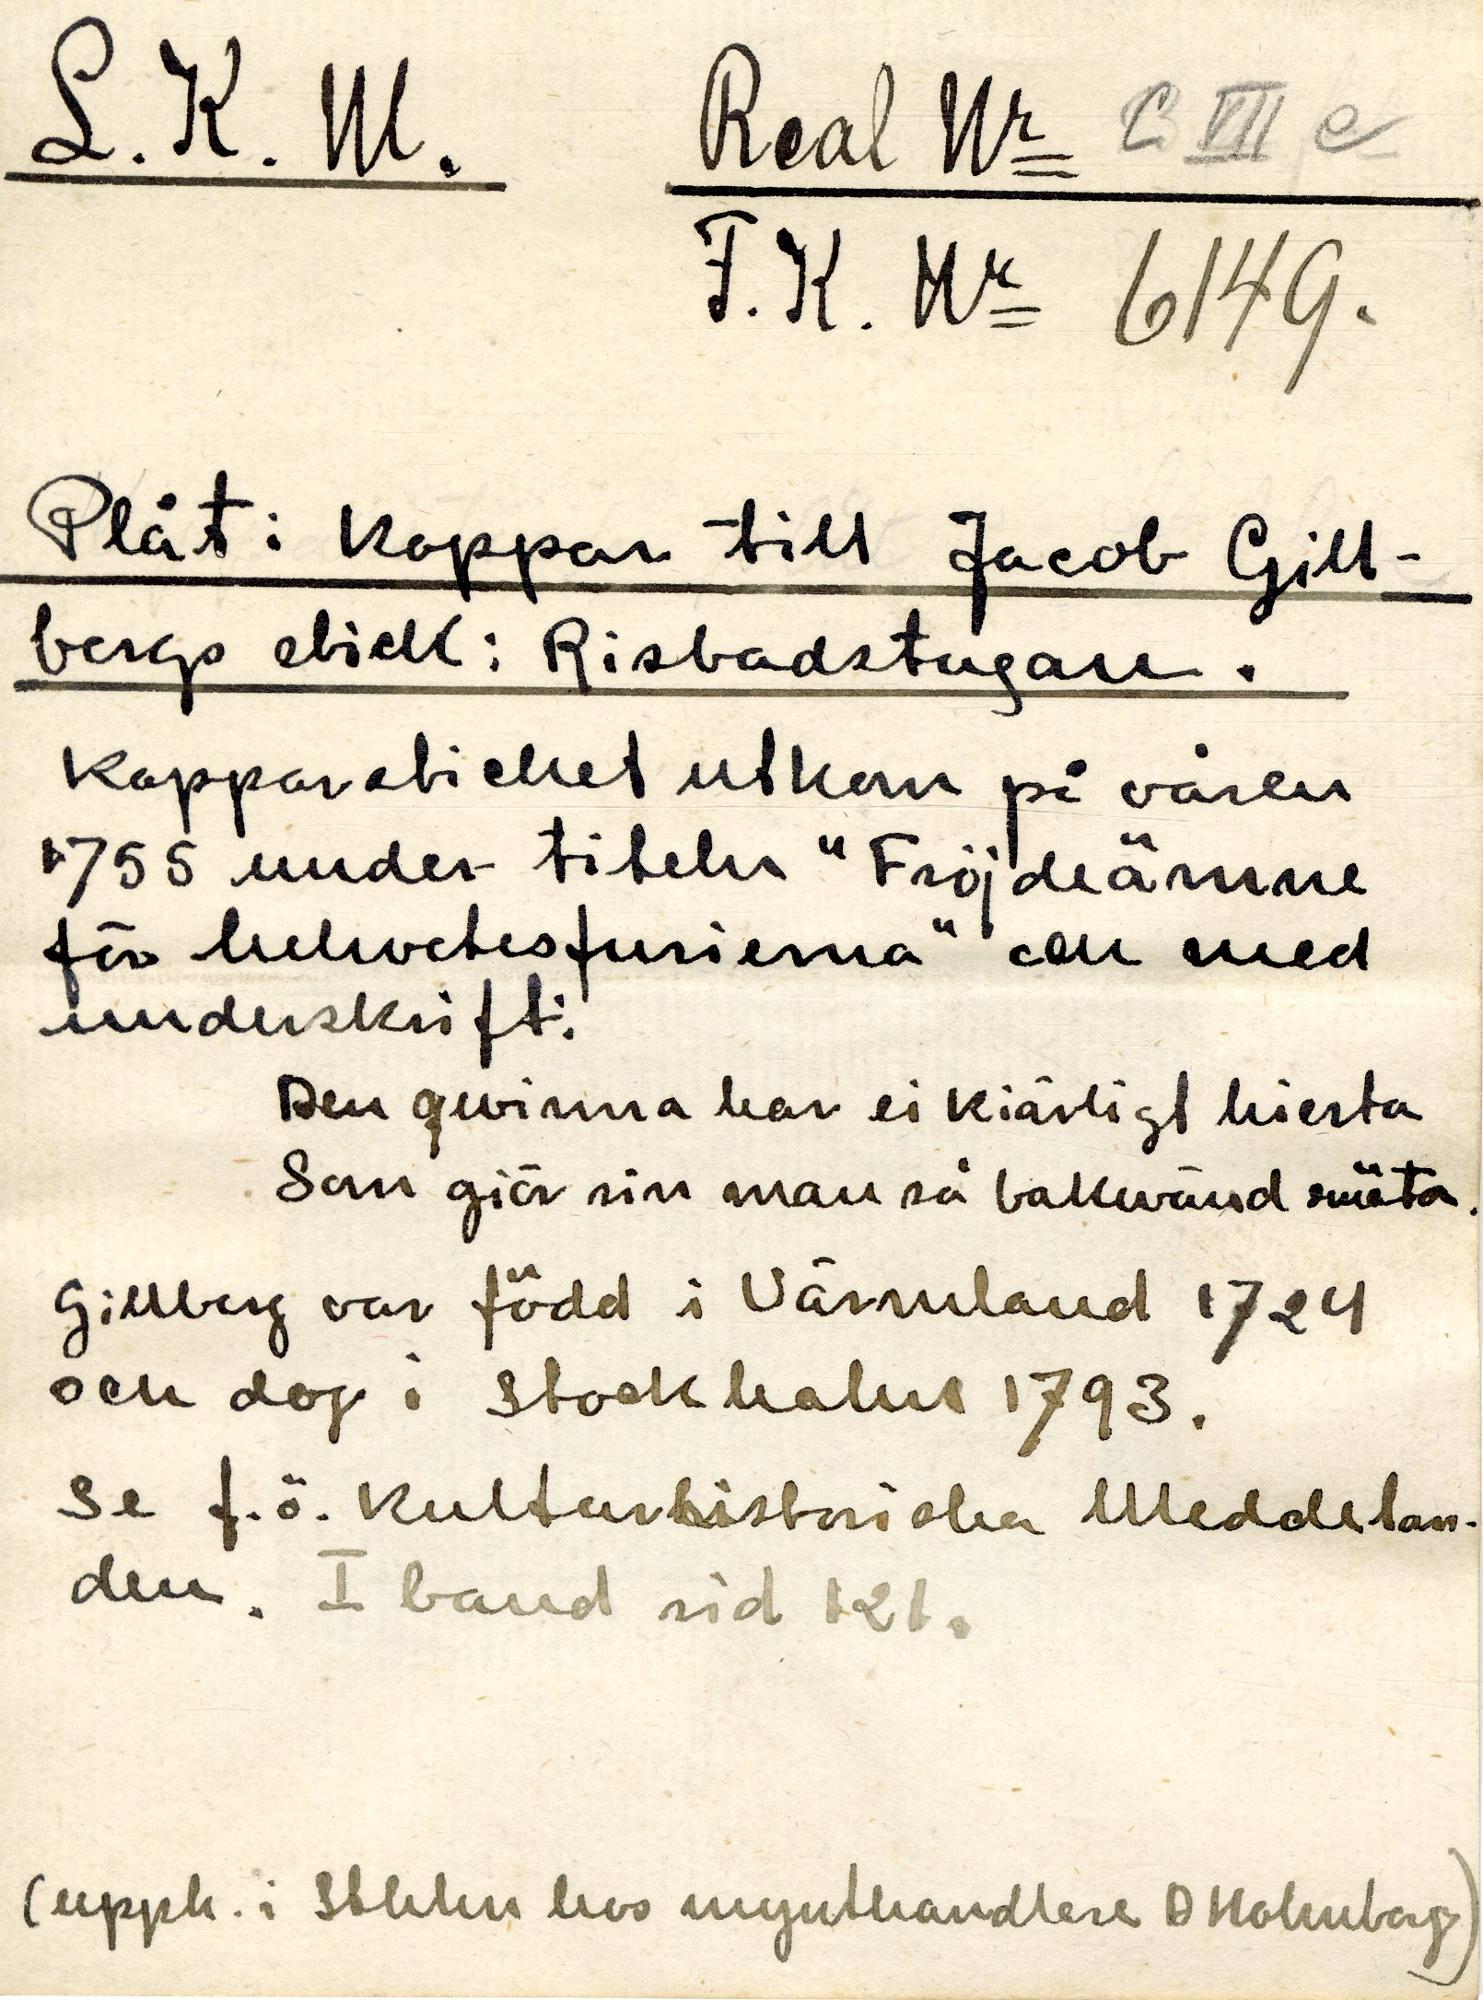 L. K. M. Real Nr C VII e
F. K. Nr 6149.
Plåt i Koppar till Jacob Gill-
bergs stick: Risbadstugan.
Kopparstichet utkom på våren
1755 under titeln "Fröjdeämne
för helvetesfurierna" och med
underskrift:
Den qwinna har ei kiärligt hierta
Som giör sin man så bakwänd smärta.
Gillberg var född i Värmland 1724
och dog i Stockholm 1793.
Se f.ö. Kulturhistoriska Meddelan-
den. I band sid 121.
(uppk. i Sthlm hos mynthandlere D Holmberg)